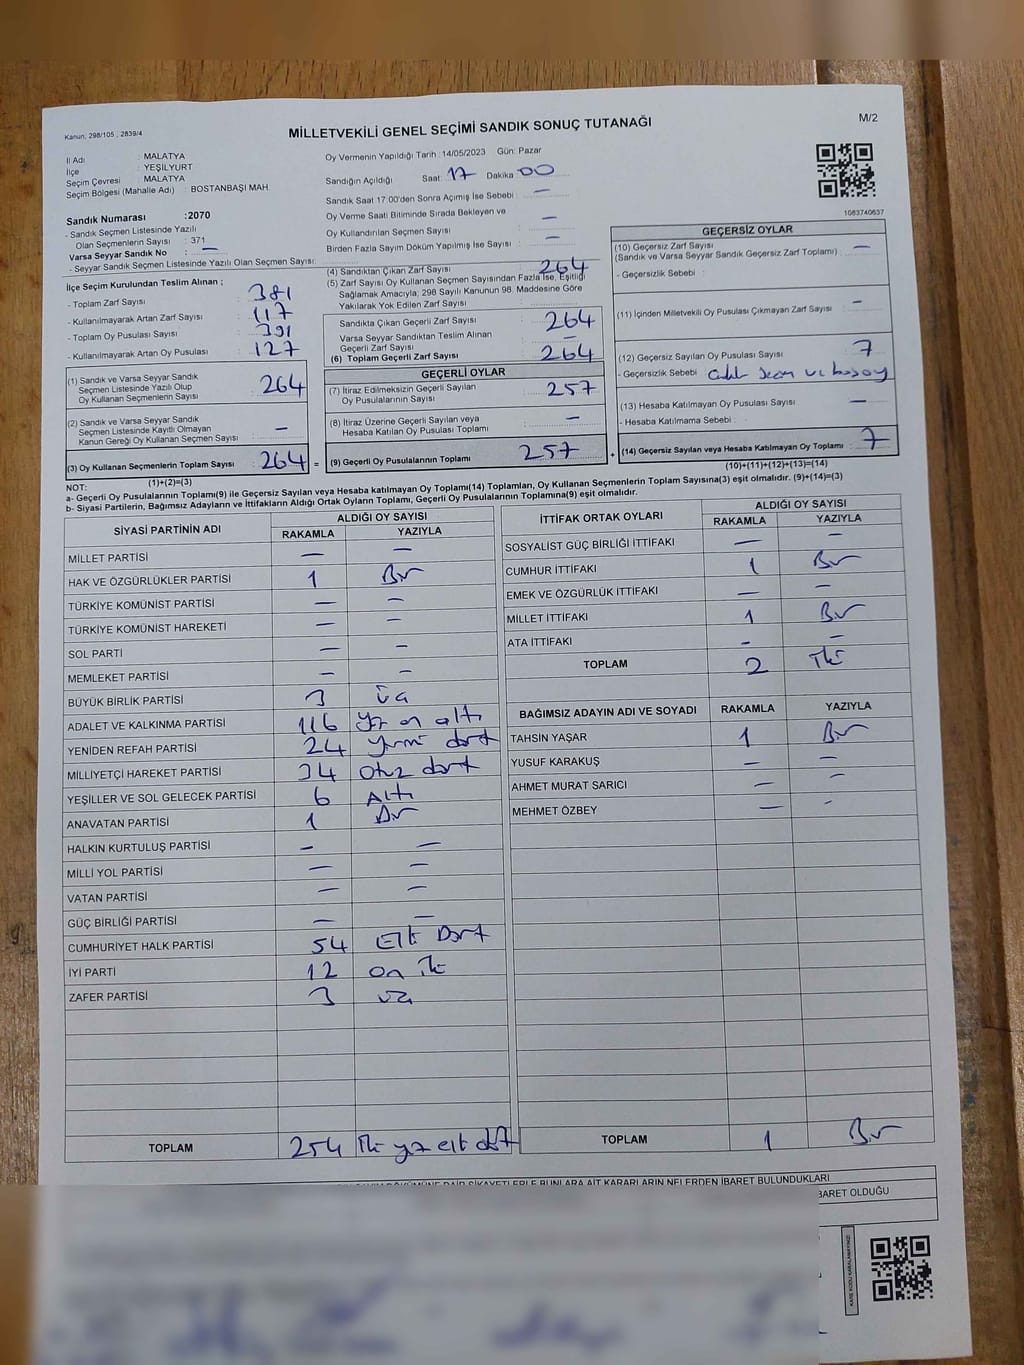 Kanun; 298/105 , 2839/4
MİLLETVEKİLİ GENEL SEÇİMİ SANDIK SONUÇ TUTANAĞI
M/2
İl Adı : MALATYA
İlçe : YEŞİLYURT
Seçim Çevresi : MALATYA
Seçim Bölgesi (Mahalle Adı) : BOSTANBAŞI MAH.
Sandık Numarası :2070
- Sandık Seçmen Listesinde Yazılı
Olan Seçmenlerin Sayısı : 371
Varsa Seyyar Sandık No : —
- Seyyar Sandık Seçmen Listesinde Yazılı Olan Seçmen Sayısı:
Oy Vermenin Yapıldığı Tarih :14/05/2023 Gün: Pazar
Sandığın Açıldığı Saat: 17 Dakika 00
Sandık Saat 17:00'den Sonra Açımış İse Sebebi : —
Oy Verme Saati Bitiminde Sırada Bekleyen ve
Oy Kullandırılan Seçmen Sayısı : —
Birden Fazla Sayım Döküm Yapılmış İse Sayısı : —
1083740637
İlçe Seçim Kurulundan Teslim Alınan ;
- Toplam Zarf Sayısı : 381
- Kullanılmayarak Artan Zarf Sayısı : 117
- Toplam Oy Pusulası Sayısı : 391
- Kullanılmayarak Artan Oy Pusulası : 127
(1) Sandık ve Varsa Seyyar Sandık
Seçmen Listesinde Yazılı Olup
Oy Kullanan Seçmenlerin Sayısı : 264
(2) Sandık ve Varsa Seyyar Sandık
Seçmen Listesinde Kayıtlı Olmayan
Kanun Gereği Oy Kullanan Seçmen Sayısı : —
(3) Oy Kullanan Seçmenlerin Toplam Sayısı : 264 =
(1)+(2)=(3)
(4) Sandıktan Çıkan Zarf Sayısı : 264
(5) Zarf Sayısı Oy Kullanan Seçmen Sayısından Fazla İse, Eşitliği
Sağlamak Amacıyla; 298 Sayılı Kanunun 98. Maddesine Göre
Yakılarak Yok Edilen Zarf Sayısı :
Sandıkta Çıkan Geçerli Zarf Sayısı : 264
Varsa Seyyar Sandıktan Teslim Alınan
Geçerli Zarf Sayısı : —
(6) Toplam Geçerli Zarf Sayısı : 264
GEÇERLİ OYLAR
(7) İtiraz Edilmeksizin Geçerli Sayılan
Oy Pusulalarının Sayısı : 257
(8) İtiraz Üzerine Geçerli Sayılan veya
Hesaba Katılan Oy Pusulası Toplamı : —
(9) Geçerli Oy Pusulalarının Toplamı : 257 +
GEÇERSİZ OYLAR
(10) Geçersiz Zarf Sayısı
(Sandık ve Varsa Seyyar Sandık Geçersiz Zarf Toplamı) : —
- Geçersizlik Sebebi :
(11) İçinden Milletvekili Oy Pusulası Çıkmayan Zarf Sayısı : —
(12) Geçersiz Sayılan Oy Pusulası Sayısı : 7
- Geçersizlik Sebebi :
(13) Hesaba Katılmayan Oy Pusulası Sayısı : —
- Hesaba Katılmama Sebebi :
(14) Geçersiz Sayılan veya Hesaba Katılmayan Oy Toplamı : 7
(10)+(11)+(12)+(13)=(14)
NOT:
a- Geçerli Oy Pusulalarının Toplamı(9) ile Geçersiz Sayılan veya Hesaba katılmayan Oy Toplamı(14) Toplamları, Oy Kullanan Seçmenlerin Toplam Sayısına(3) eşit olmalıdır. (9)+(14)=(3)
b- Siyasi Partilerin, Bağımsız Adayların ve İttifakların Aldığı Ortak Oyların Toplamı, Geçerli Oy Pusulalarının Toplamına(9) eşit olmalıdır.
SİYASİ PARTİNİN ADI ALDIĞI OY SAYISI
RAKAMLA YAZIYLA
MİLLET PARTİSİ — —
HAK VE ÖZGÜRLÜKLER PARTİSİ 1 Bir
TÜRKİYE KOMÜNİST PARTİSİ — —
TÜRKİYE KOMÜNİST HAREKETİ — —
SOL PARTİ — —
MEMLEKET PARTİSİ — —
BÜYÜK BİRLİK PARTİSİ 3 üç
ADALET VE KALKINMA PARTİSİ 116 yüz on altı
YENİDEN REFAH PARTİSİ 24 yirmi dört
MİLLİYETÇİ HAREKET PARTİSİ 34 otuz dört
YEŞİLLER VE SOL GELECEK PARTİSİ 6 Altı
ANAVATAN PARTİSİ 1 Bir
HALKIN KURTULUŞ PARTİSİ — —
MİLLİ YOL PARTİSİ — —
VATAN PARTİSİ — —
GÜÇ BİRLİĞİ PARTİSİ — —
CUMHURİYET HALK PARTİSİ 54 Elli Dört
İYİ PARTİ 12 on iki
ZAFER PARTİSİ 3 üç
TOPLAM 254 İki yüz elli dört
İTTİFAK ORTAK OYLARI ALDIĞI OY SAYISI
RAKAMLA YAZIYLA
SOSYALİST GÜÇ BİRLİĞİ İTTİFAKI — —
CUMHUR İTTİFAKI 1 Bir
EMEK VE ÖZGÜRLÜK İTTİFAKI — —
MİLLET İTTİFAKI 1 Bir
ATA İTTİFAKI — —
TOPLAM 2 İki
BAĞIMSIZ ADAYIN ADI VE SOYADI RAKAMLA YAZIYLA
TAHSİN YAŞAR 1 Bir
YUSUF KARAKUŞ — —
AHMET MURAT SARICI — —
MEHMET ÖZBEY — —
TOPLAM 1 Bir
DAİR ŞİKAYETLERLE BUNLARA AİT KARARLARIN NELERDEN İBARET BULUNDUKLARI
BARET OLDUĞU